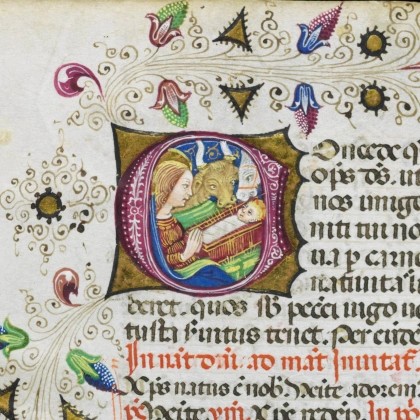 Concede q
ops ds. ut
nos unige
niti tui no
ua p carne
natiuitas li
beret. quos sb pecci iugo ue
tusta suitus tenet. Per eude
In nat dni. ad mat Inuitat.
Xps natus e nob Venite adorem
ps Venite